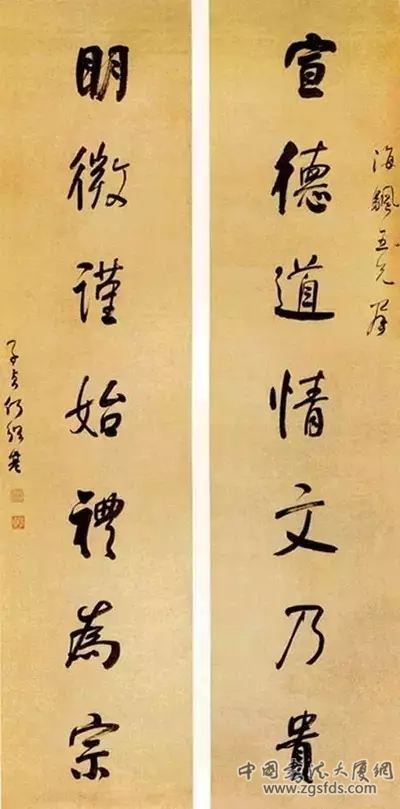 海颿五兄属
宣德道情文乃貴
明微謹始禮為宗
子貞何紹基
中國书法大厦網
www.zgsfds.com